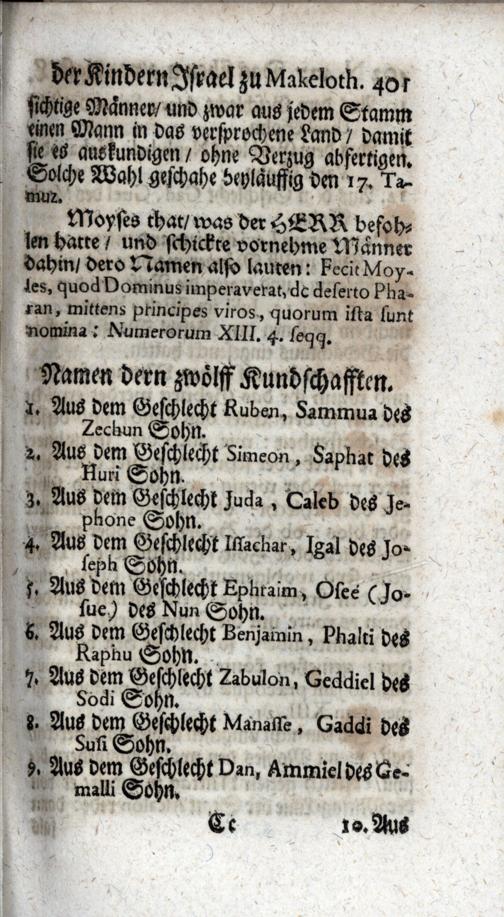 der Kindern Israel zu Makeloth. 401
sichtige Männer/ und zwar aus jedem Stamm
einen Mann in das versprochene Land/ damit
sie es auskundigen/ ohne Verzug abfertigen.
Solche Wahl geschahe beyläuffig den 17. Ta-
muz.
Moyses that/ was der HERR befoh-
len hatte/ und schickte vornehme Männer
dahin/ dero Namen also lauten: Fecit Moy-
ses, quod Dominus imperaverat, de deserto Pha-
ran, mittens principes viros, quorum ista sunt
nomina: Numerorum XIII. 4. seqq.
Namen dern zwölff Kundschafften.
1. Aus dem Geschlecht Ruben, Sammua des
Zechun Sohn.
2. Aus dem Geschlecht Simeon, Saphat des
Huri Sohn.
3. Aus dem Geschlecht Juda, Caleb des Je-
phone Sohn.
4. Aus dem Geschlecht Issachar, Igal des Jo-
seph Sohn.
5. Aus dem Geschlecht Ephraim, Osee (Jo-
sue) des Nun Sohn.
6. Aus dem Geschlecht Benjamin, Phalti des
Raphu Sohn.
7. Aus dem Geschlecht Zabulon, Geddiel des
Sodi Sohn.
8. Aus dem Geschlecht Manasse, Gaddi des
Susi Sohn.
9. Aus dem Geschlecht Dan, Ammiel des Ge-
malli Sohn.
Cc 10. Aus